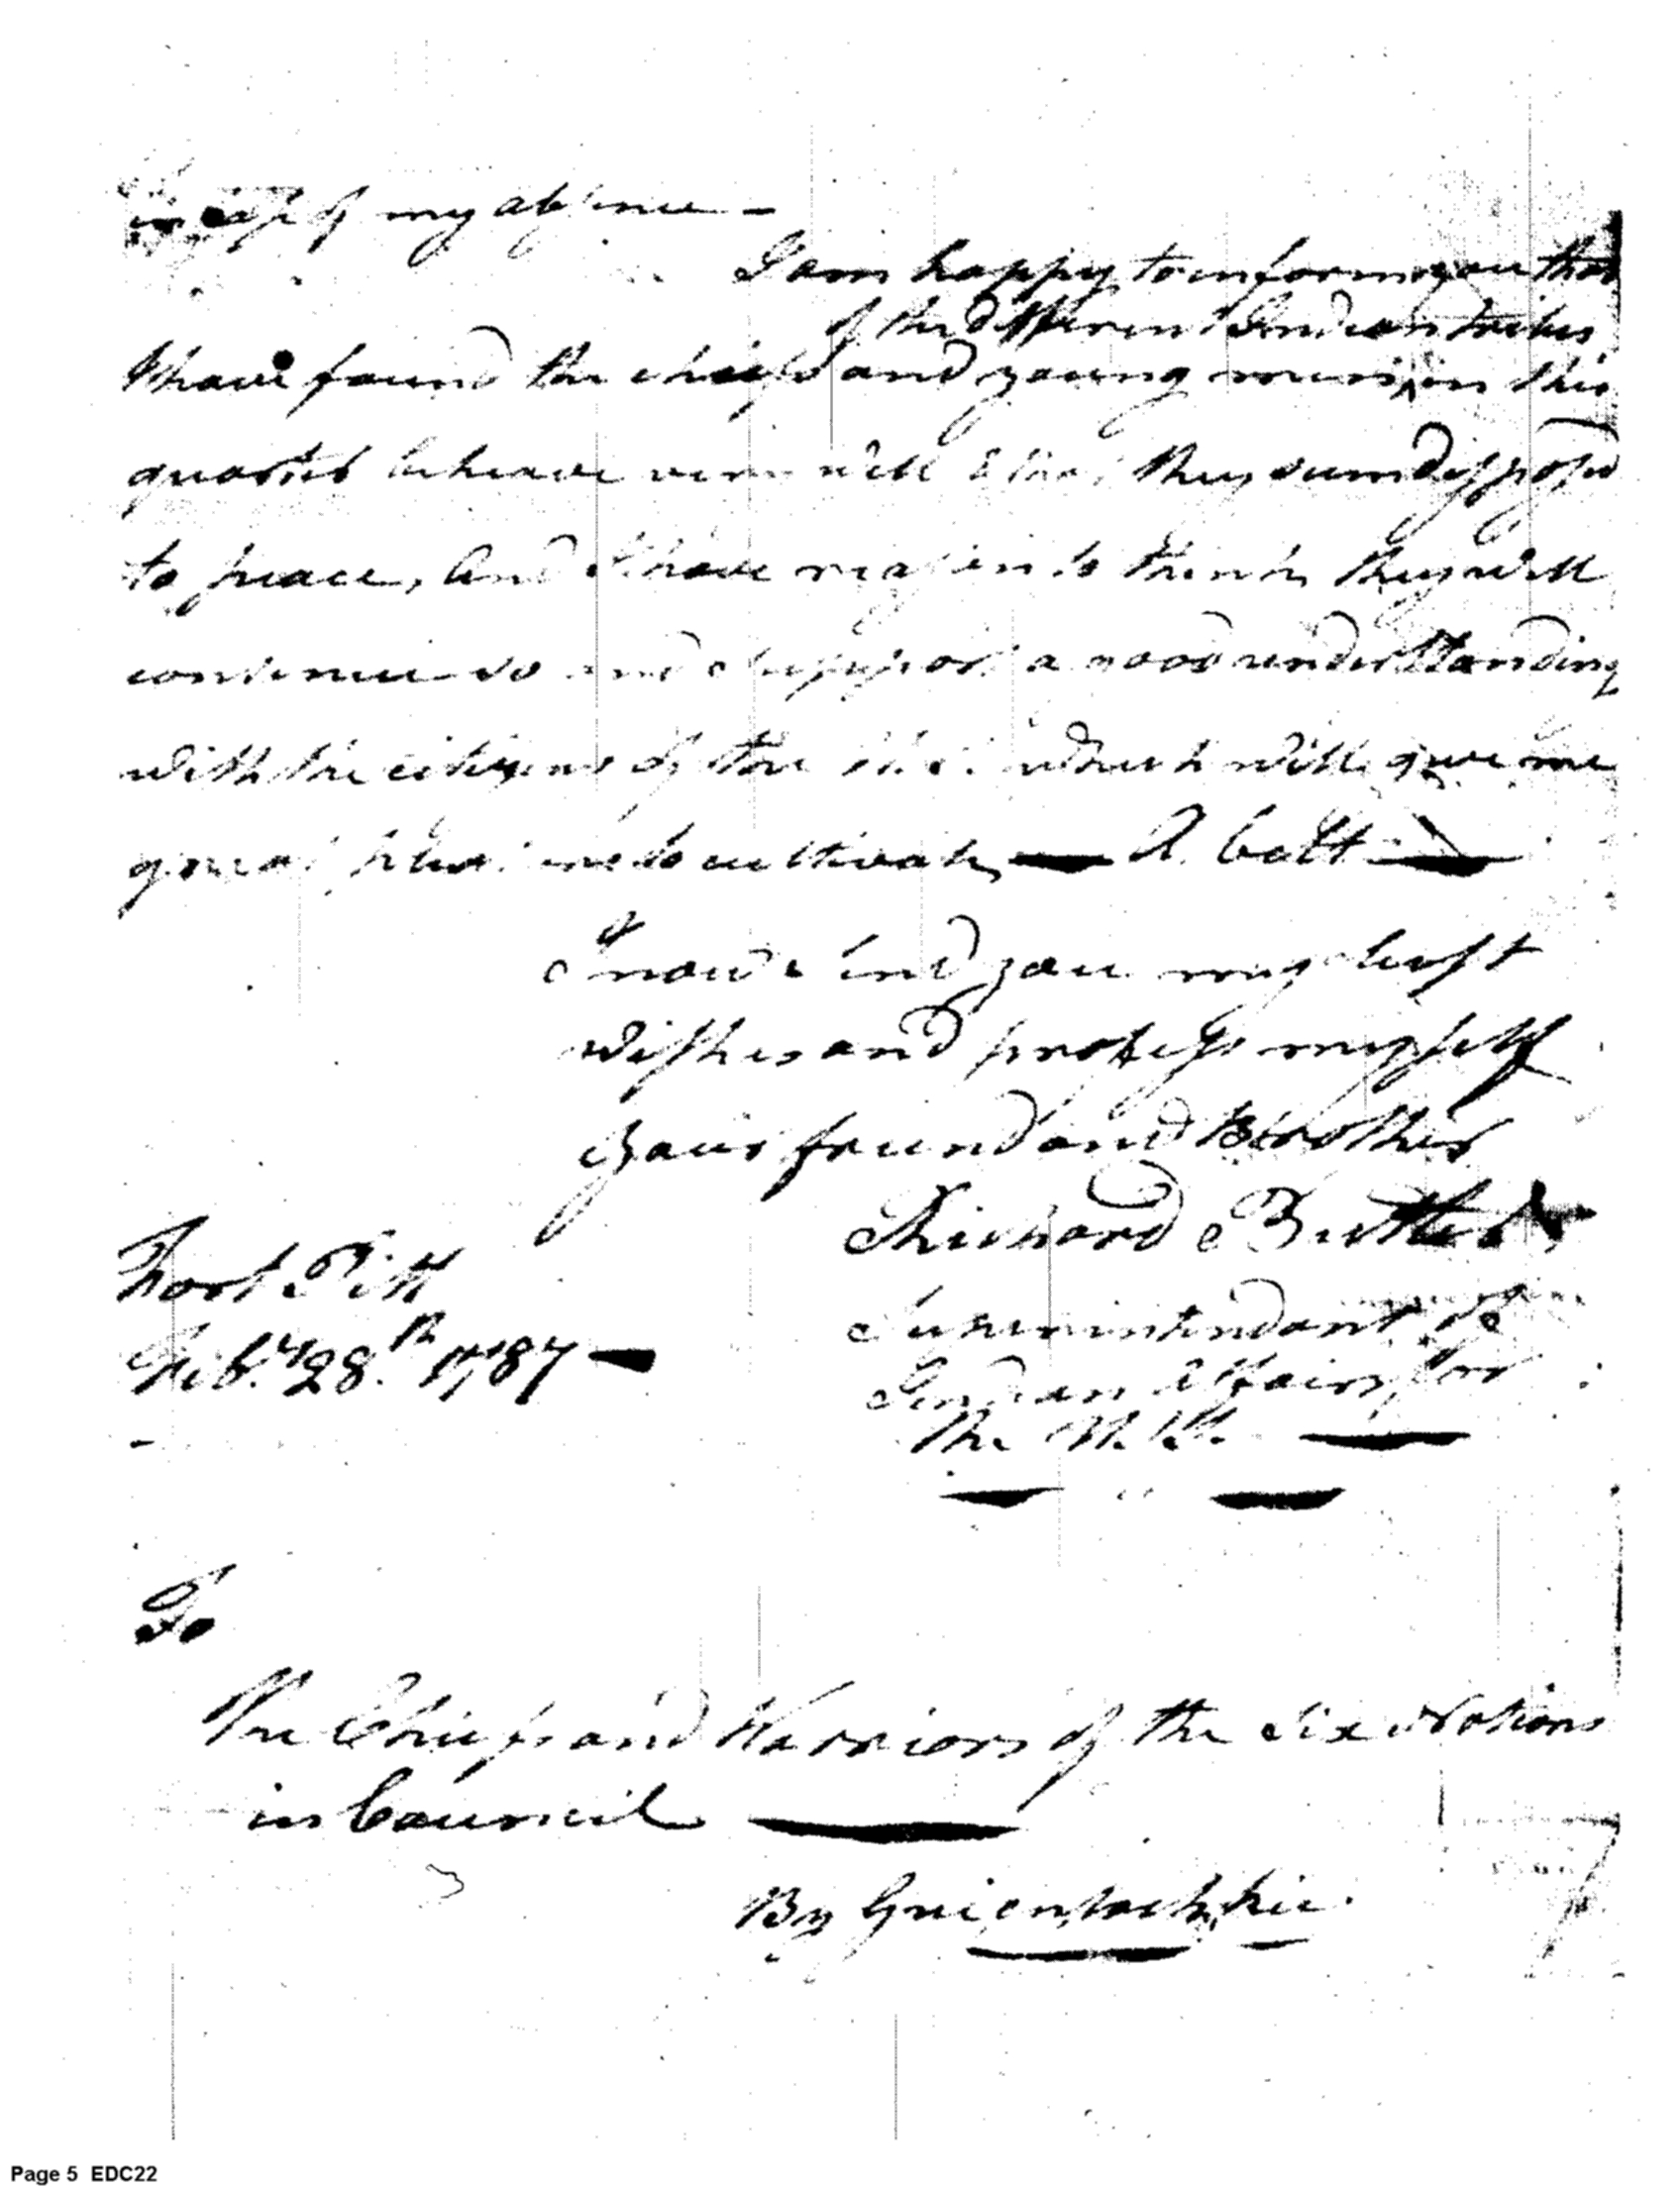 in case of my absence –
I am happy to inform you that
of the different Indian tribes
I have found the chiefs and young men in this
quarter behave very well & that they seem disposed
to peace, and I have reason to think they will
continue so and support a good understanding
with the citizens of the which will give me
great pleasure to cultivate — A Belt —
I now send you my best
wishes and profess myself
your friend and Brother
Richard Butler
Fort Pitt
Superintendant of
Feby. 28th. 1787 —
Indian Affairs for
the N. D. —
To
The Chiefs and Warriors of the Six Nations
in Council —
By
Page 5 EDC22